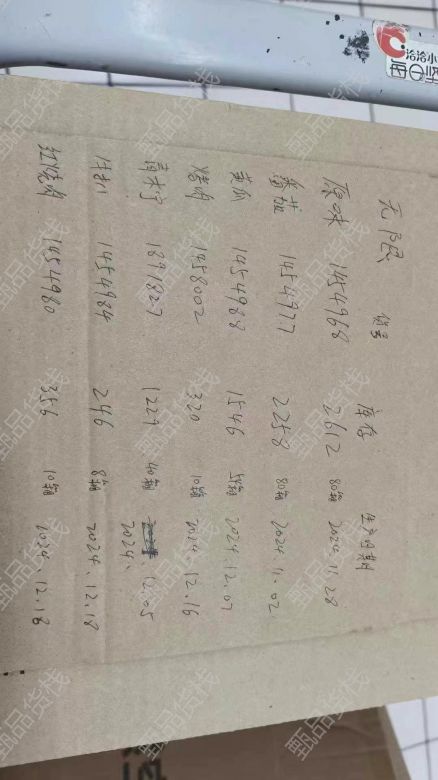 无限 储号 库存 生产日期
原味 1454968 2612 80箱 2024.11.28
番茄 1454977 2258 80箱 2024.11.02
黄瓜 1454988 1546 5箱 2024.12.07
烤肉 1458002 320 10箱 2024.12.16
1891827 1229 40箱 2024.12.05
1454984 246 8箱 2024.12.18
红烧肉 1454980 356 10箱 2024.12.18
洽洽小
甄品货栈